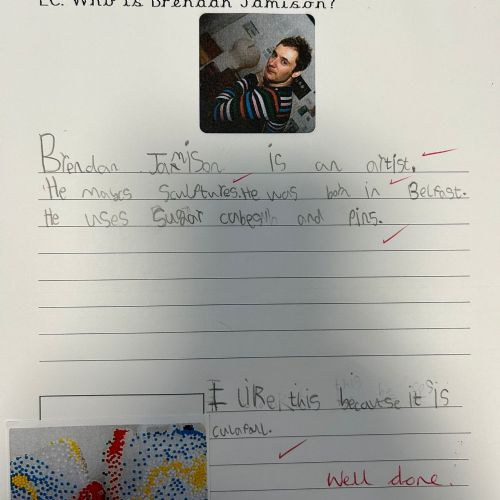 LC: Who is Brendan Jamison?
Brendan Jamison is an artist.
He makes Sculptures. He was boh in Belfast.
He uses Sugar cubes and Pins.
I Like this because it is
culafall.
Well done.